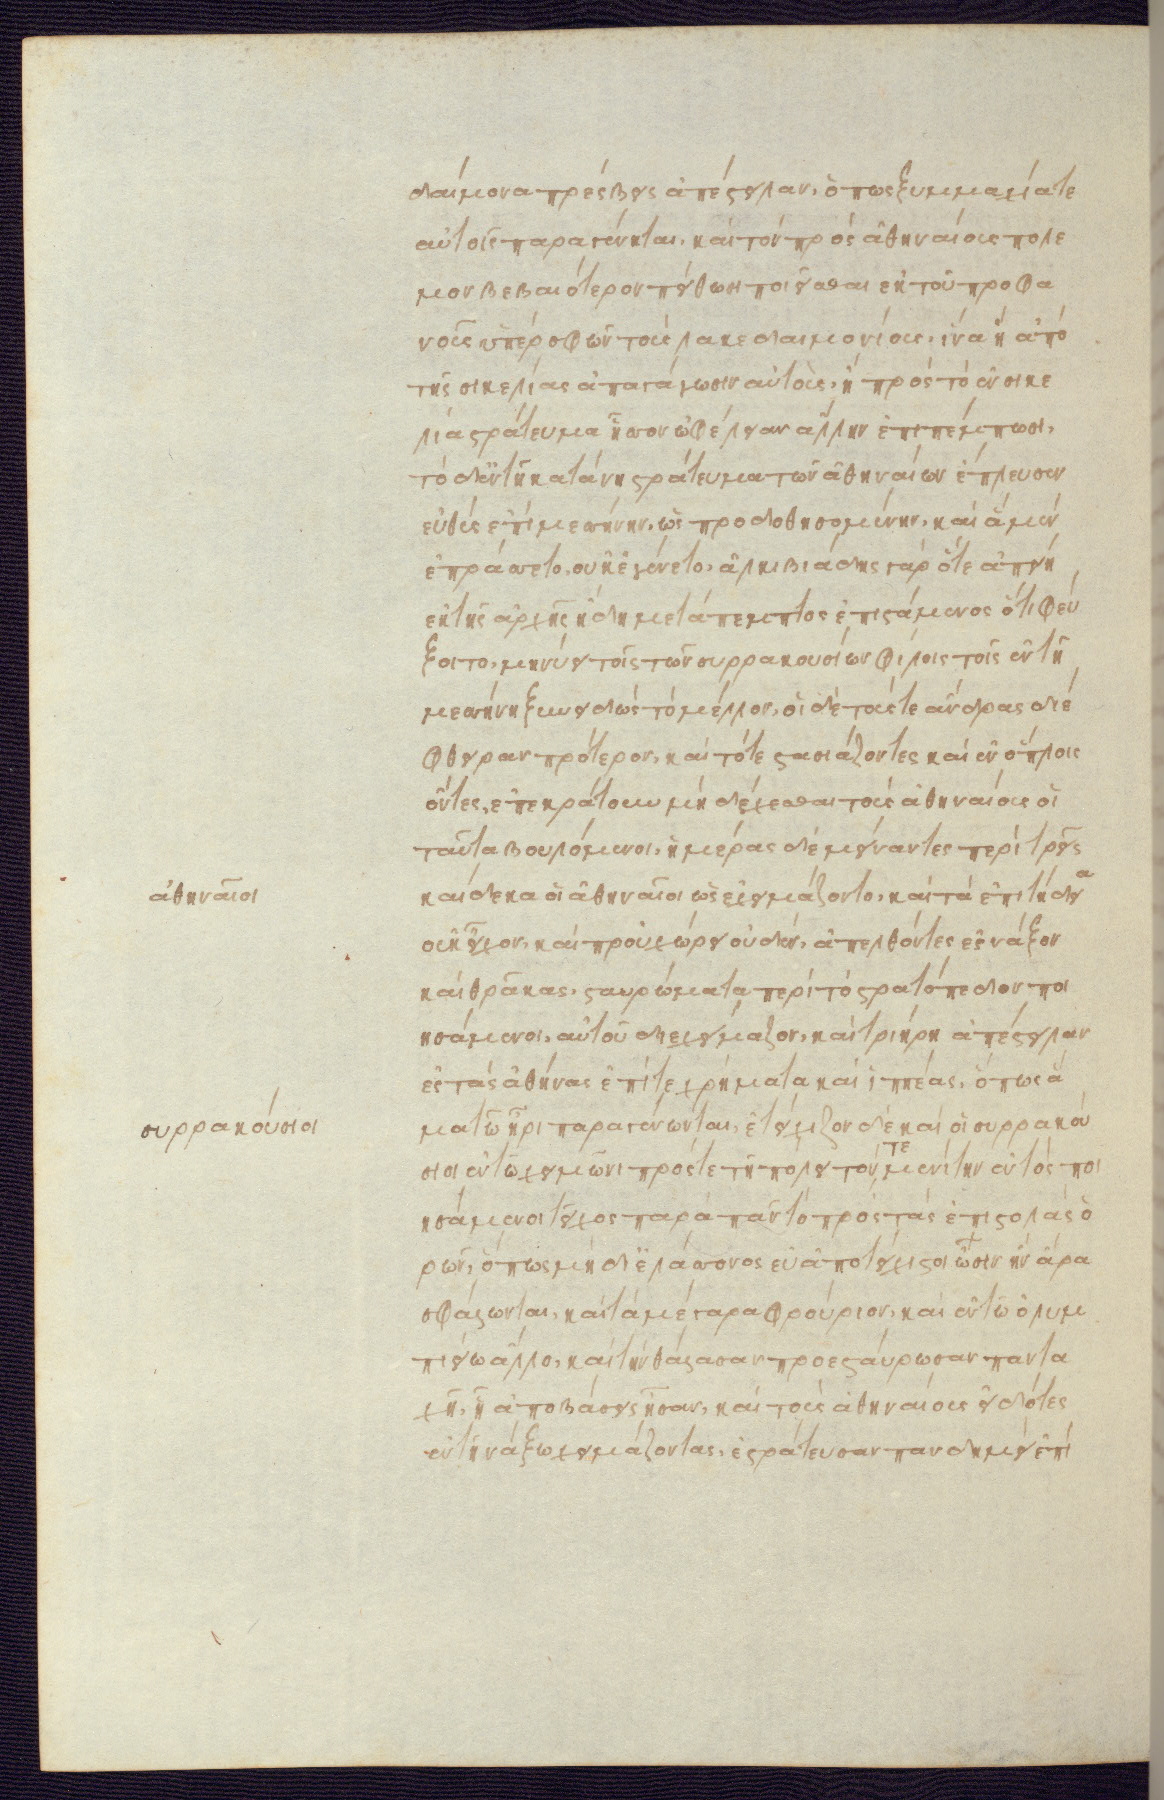 δαίμονα πρέσβεις ἀπέστειλαν, ὅπως ξυμμαχία τε
αὐτοῖς παραγένηται, καὶ τὸν πρὸς ἀθηναίους πόλε
μον βεβαιότερον πείθωσι ποιεῖσθαι ἐκ τοῦ προφα
νοῦς ὑπὲρ σφῶν τοὺς λακεδαιμονίους, ἵνα ἢ ἀπὸ
τῆς σικελίας ἀπαγάγωσιν αὐτοὺς, ἢ πρὸς τὸ ἐν σικε
λία στράτευμα ἧσσον ὠφέλειαν ἄλλην ἐπιπέμπωσι,
τὸ δ' ἐν τῆ κατάνη στράτευμα τῶν ἀθηναίων ἔπλευσεν
εὐθὺς ἐπὶ μεσσήνην, ὡς προδοθησομένην, καὶ ἃ μὲν
ἐπράσσετο, οὐκ ἐγένετο, ἀλκιβιάδης γὰρ ὅτε ἀπήει
ἐκ τῆς ἀρχῆς ἤδη μετάπεμπτος ἐπιστάμενος ὅτι φεύ
ξοιτο, μηνύει τοῖς τῶν συρρακουσίων φίλοις τοῖς ἐν τῆ
μεσσήνη ξυνειδὼς τὸ μέλλον, οἱ δὲ τούς τε ἄνδρας διέ
φθειραν πρότερον, καὶ τότε στασιάζοντες καὶ ἐν ὅπλοις
ὄντες, ἐπεκράτουν μὴ δέχεσθαι τοὺς ἀθηναίους οἱ
ταῦτα βουλόμενοι, ἡμέρας δὲ μείναντες περὶ τρεῖς
ἀθηναῖοι
καὶ δεκα οἱ ἀθηναῖοι ὡς ἐχειμάζοντο, καὶ τὰ ἐπιτήδεια
οὐκ εἶχον, καὶ προὐχώρει οὐδέν, ἀπελθόντες ἐς νάξον
καὶ θρᾶκας, σταυρώματα περὶ τὸ στρατόπεδον ποι
ησάμενοι, αὐτοῦ διεχείμαζον, καὶ τριήρη ἀπέστειλαν
ἐς τὰς ἀθήνας ἐπί τε χρήματα καὶ ἱππέας, ὅπως ἅ
συρρακούσιοι
μα τῶ ἦρι παραγένωνται, ἐτείχιζον δὲ καὶ οἱ συρρακού
σιοι ἐν τῶ χειμῶνι πρός τε τῆ πόλει τόν τε μενίτην ἐντὸς ποι
ησάμενοι τεῖχος παρὰ πᾶν τὸ πρὸς τὰς ἐπιστολὰς ὁ
ρῶν, ὅπως μὴ δι' ἐλάσσονος εὐαποτείχιστοι ὦσιν ἢν ἄρα
σφάλωνται, καὶ τὰ μέγαρα φρούριον, καὶ ἐν τῶ ὀλυμ
πιείω ἄλλο, καὶ τὴν θάλασσαν προεσταύρωσαν παντα
χῆ, ἧ ἀποβάσεις ἦσαν, καὶ τοὺς ἀθηναίους εἰδότες
ἐν τῆ νάξω χειμάζοντας, ἐστράτευσαν πανδημεὶ ἐπὶ